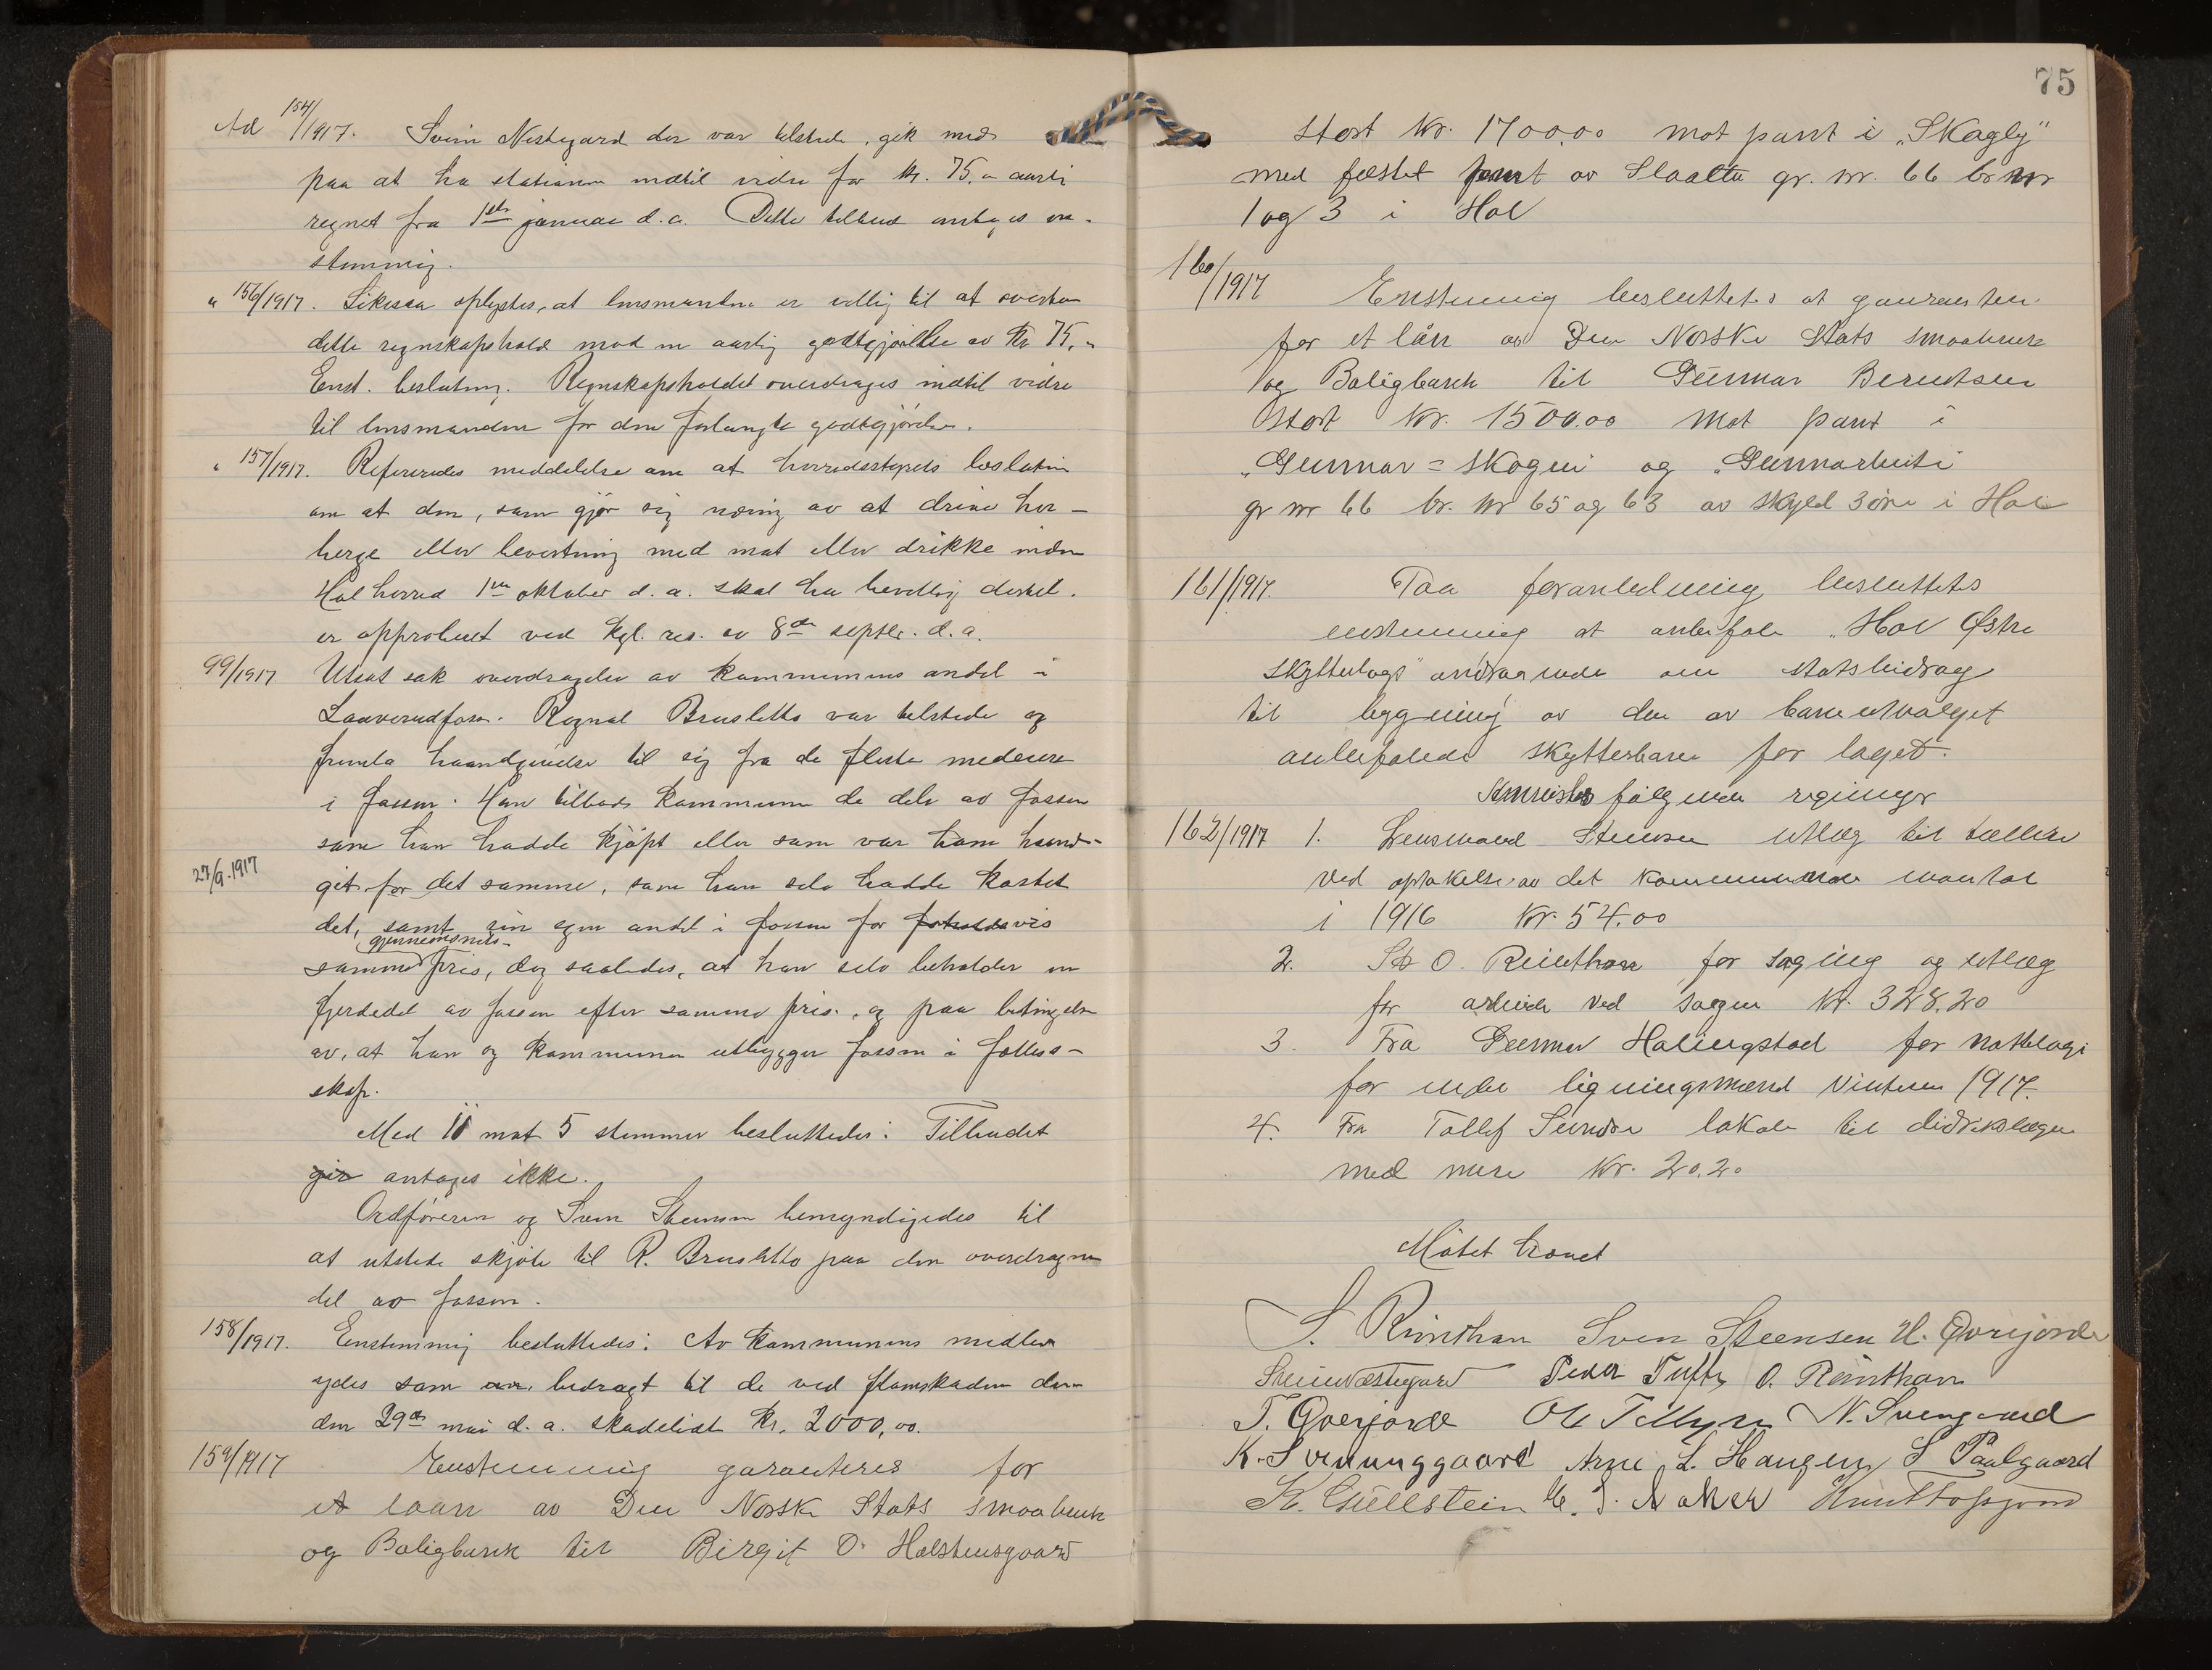 Ad 154/1917. Svein Nestegard der var tilstede, gik med
paa at ha stationen indtil videre for kr. 75,- aarlig
regnet fra 1ste januar d.a. Dette tilbud antages en-
stemmig.
" 156/1917. Likesaa oplystes, at lensmanden er villig til at overta
dette regnskapshold mod en aarlig godtgjørelse av kr 75,-
Enst. beslutning. Regnskapsholdet overdrages indtil vidre
til lensmanden for den forlangte godtgjørelse.
" 157/1917. Refereredes meddelelse om at herredsstyrets beslutning
om at den, som gjør sig næring av at drive her-
berge eller bevertning med mat eller drikke inden
Hol herred 1ste oktober d.a. skal ha bevilling dertil.
er approbert ved kgl. res. av 8de septbr. d.a.
99/1917 Utsat sak overdragelse av kommunens andel i
Laaverudfoss. Ragnal Brusletto var tilstede og
fremla haandgivelse til sig fra de fleste medeiere
i fossen. Han tilbød kommunen de dele av fossen
som han hadde kjøpt eller som var ham haand-
27/9-1917
git for det samme, som han selv hadde kostet
det, samt sin egen andel i fossen for forholdsvis
gjennemsnits-
samme pris, dog saaledes, at han selv beholder en
fjerdedel av fossen efter samme pris, og paa betingelse
av, at han og kommunen utbygger fossen i fælles-
skap.
Med 11 mot 5 stemmer besluttedes: Tilbudet
gir antages ikke.
Ordføreren og Sven Steensen bemyndigedes til
at utstede skjøte til R. Brusletto paa den overdragne
del av fossen.
158/1917. Enstemmig besluttedes: Av kommunens midler
ydes som bidragt til de ved flomskaden den
den 29de mai d.a. skadelidte kr. 2000,00.
159/1917 Enstemmig garanteres for
et laan av Den Norske Stats smaabruk
og Boligbank til Birgit O. Holstensgaard
75
stort kr. 1700,00 mot pant i „Skagly"
med fæstet pant av Slaatte gr. nr. 66 br nr
1 og 3 i Hol
160/1917 Enstemmig besluttetes at garantere
for et lån av Den Norske Stats smaabruk
og Boligbank til Gunnar Berntsen
stort kr. 1500.00 mot pant i
„Gunnar=skogen og „Gunnarbeite
gr nr 66 br. nr 65 og 63 av skyld 3 øre i Hol
161/1917. Paa foranledning besluttetes
enstemmig at anbefale „Hol Østre
skytterlags" andragende om statsbidrag
til bygning av den av baneutvalget
anbefalede skytterbane for laget.
Anvistes følgende regninger
162/1917 1. Lensmand Steensen utlæg til tællere
ved optakelse av det kommunale mantal
i 1916 kr. 54.00
2. St O. Reinthon for saging og utlæg
for arbeide ved sagen kr. 328.20
3. Fra Gunnar Halingstad for natteloge
for indre ligningsmænd vinteren 1917.
4. Fra Tollef Sundre lokale til distrikslægen
med mere kr. 20.20
Møtet hævet
S. Rinthan Sven Steensen H. Qverjorde
Svein Nestegard Peder Tufte O. Reinthan
T. Qverjorde Ole Tollefsen N. Svengaard
K. Svenunggaard Arne L. Haugen S Paalgaard
K. Gullstein E. S. Aaker Knut Tofsgaard